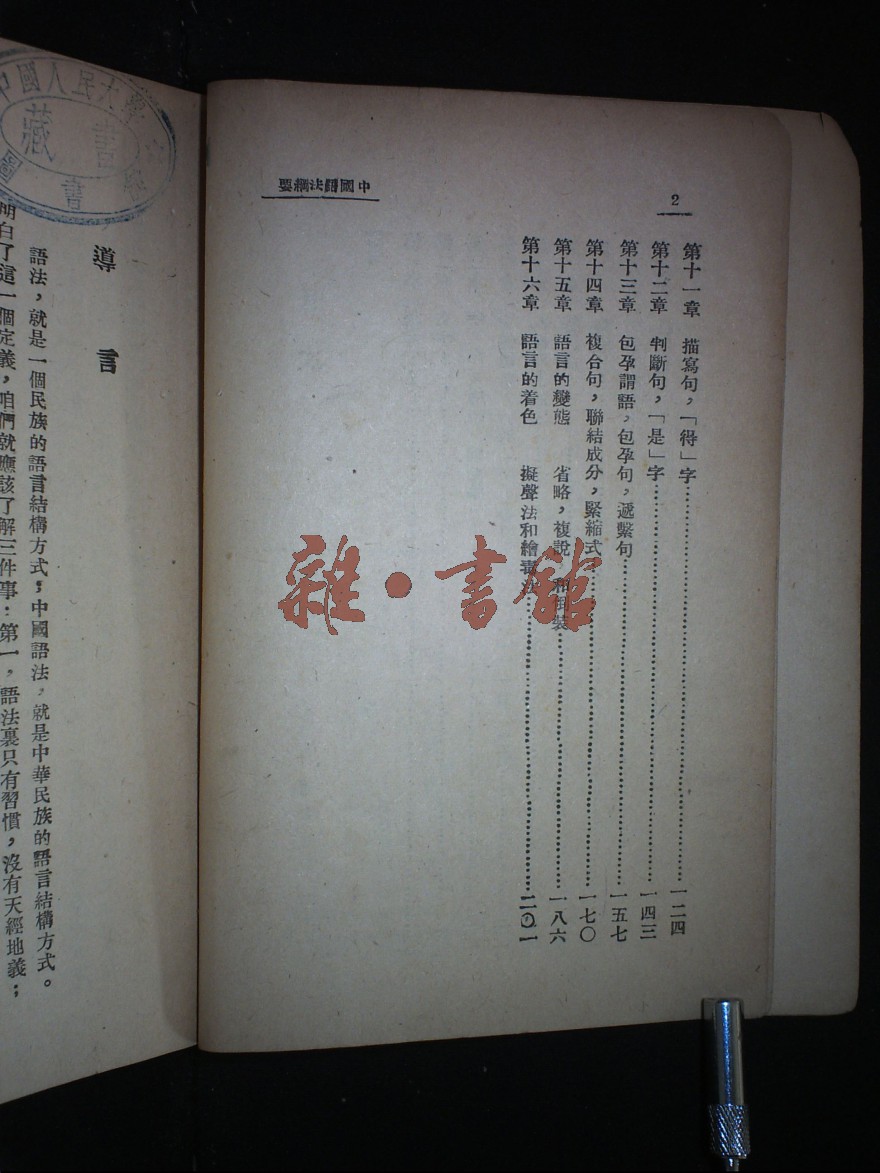 2
中國語法綱要
第十一章　描寫句，「得」字……一二四
第十二章　判斷句，「是」字……一四三
第十三章　包孕謂語，包孕句，遞繫句……一五七
第十四章　複合句，聯結成分，緊縮式……一七〇
第十五章　語言的變態　省略，複說，和倒裝……一八六
第十六章　語言的着色　擬聲法和繪⋯法……二〇一
雜·書館
中國人民大學
藏書
圖書
導言
語法，就是一個民族的語言結構方式；中國語法，就是中華民族的語言結構方式。
明白了這一個定義，咱們就應該了解三件事：第一，語法裏只有習慣，沒有天經地義；